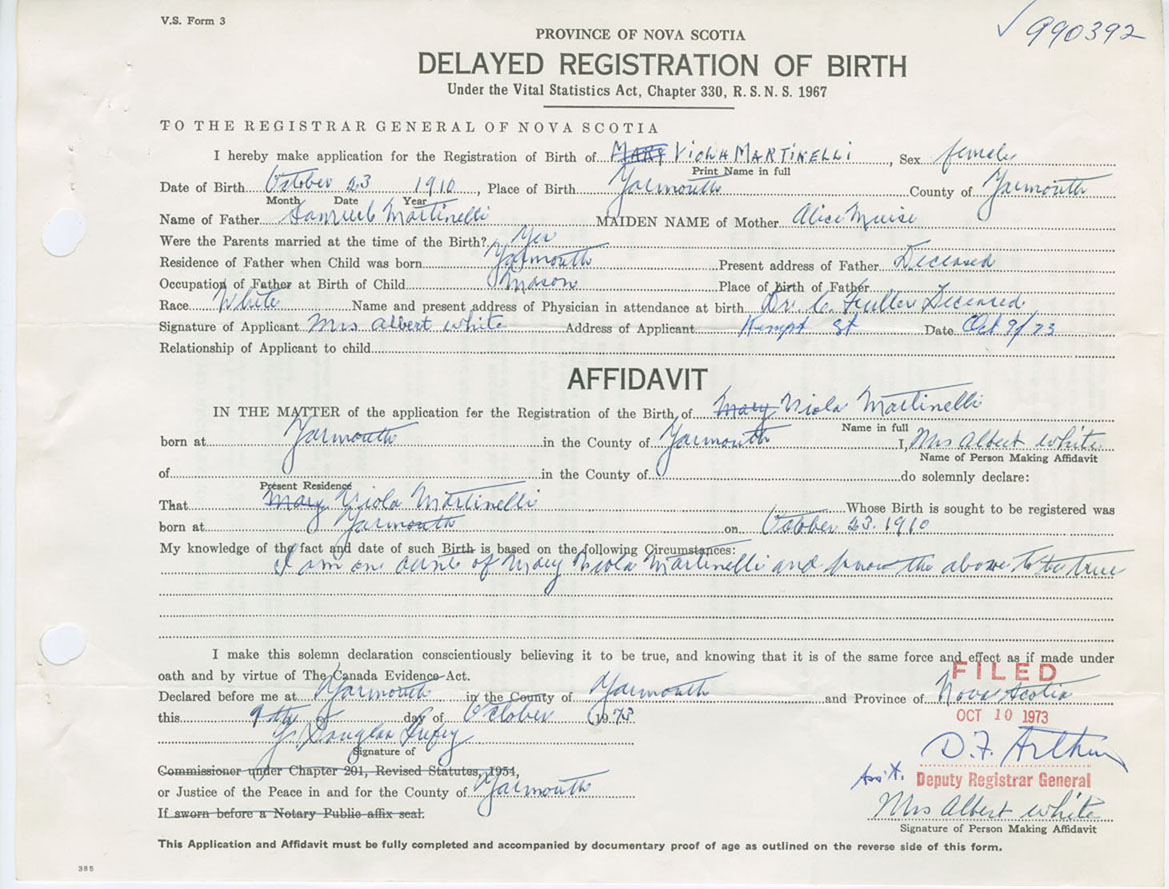 V.S. Form 3
✓ 990392
PROVINCE OF NOVA SCOTIA
DELAYED REGISTRATION OF BIRTH
Under the Vital Statistics Act, Chapter 330, R. S. N. S. 1967
TO THE REGISTRAR GENERAL OF NOVA SCOTIA
I hereby make application for the Registration of Birth of MARY VIOLA MARTINELLI, Sex female
Print Name in full
Date of Birth October 23 1910, Place of Birth Yarmouth County of Yarmouth
Month Date Year
Name of Father Samuel Martinelli MAIDEN NAME of Mother Alice Muise
Were the Parents married at the time of the Birth? Yes
Residence of Father when Child was born Yarmouth Present address of Father Deceased
Occupation of Father at Birth of Child Mason Place of birth of Father
Race White Name and present address of Physician in attendance at birth Dr. C. Fuller Deceased
Signature of Applicant Mrs Albert White Address of Applicant Kempt St Date Oct 9/73
Relationship of Applicant to child
AFFIDAVIT
IN THE MATTER of the application for the Registration of the Birth of Mary Viola Martinelli
Name in full
born at Yarmouth in the County of Yarmouth I, Mrs Albert White
Name of Person Making Affidavit
of in the County of do solemnly declare:
Present Residence
That Mary Viola Martinelli Whose Birth is sought to be registered was
born at Yarmouth on October 23. 1910
My knowledge of the fact and date of such Birth is based on the following Circumstances:
I am an aunt of Mary Viola Martinelli and know the above to be true
I make this solemn declaration conscientiously believing it to be true, and knowing that it is of the same force and effect as if made under
oath and by virtue of The Canada Evidence Act.
FILED
Declared before me at Yarmouth in the County of Yarmouth and Province of Nova Scotia
this 9th of day of October 1973
OCT 10 1973
Douglas
Signature of
D. F. Arthur
Commissioner under Chapter 201, Revised Statutes, 1954,
Ass't. Deputy Registrar General
or Justice of the Peace in and for the County of Yarmouth
Mrs Albert White
If sworn before a Notary Public affix seal.
Signature of Person Making Affidavit
This Application and Affidavit must be fully completed and accompanied by documentary proof of age as outlined on the reverse side of this form.
385